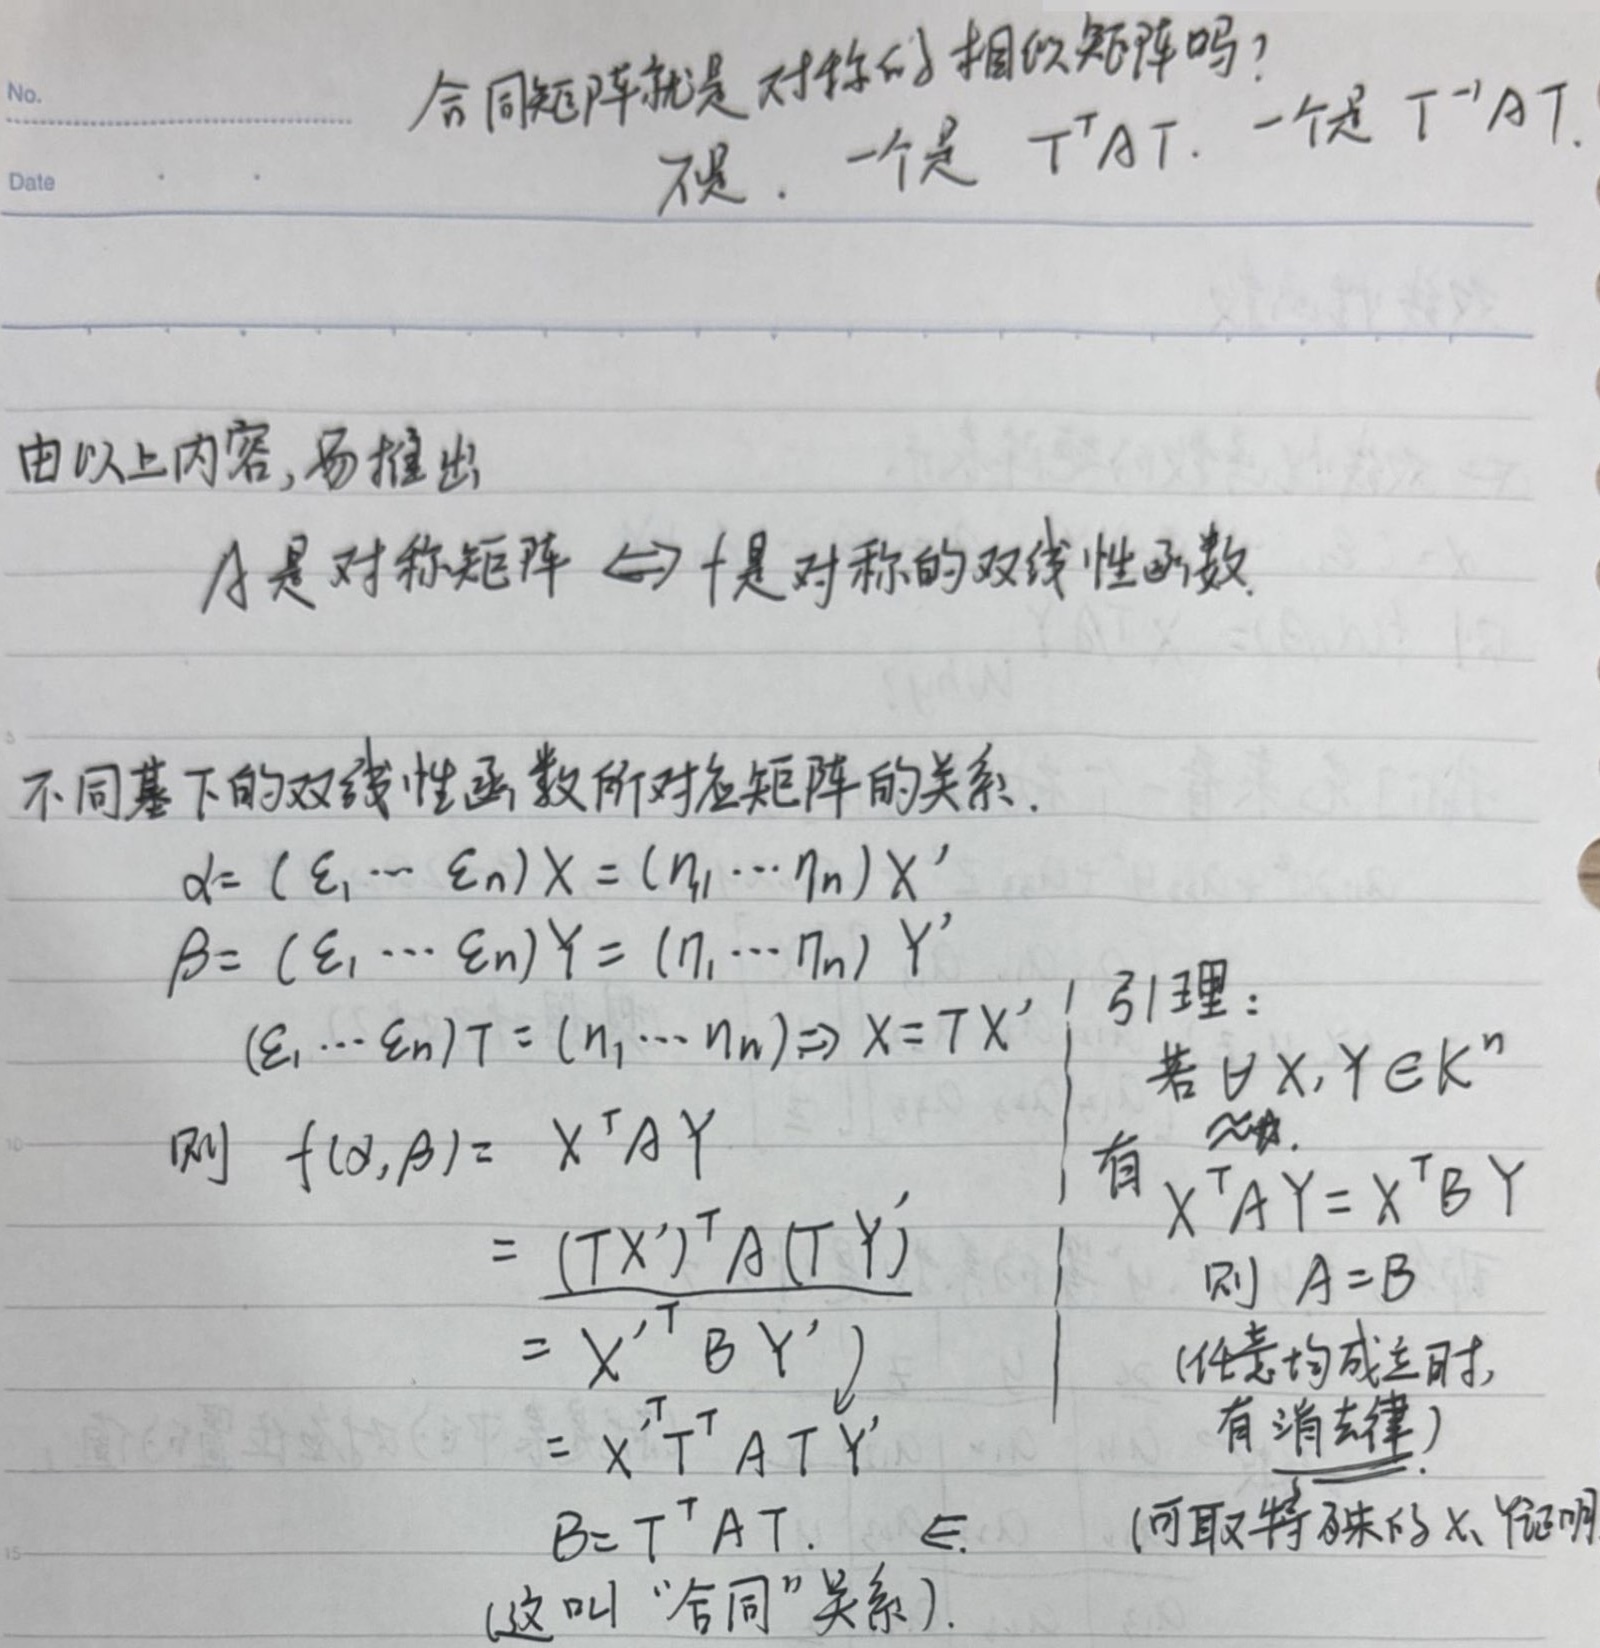 No.
Date
合同矩阵就是对称的相似矩阵吗？
不是．一个是 TᵀAT．一个是 T⁻¹AT．
由以上内容，易推出
A是对称矩阵 ⇔ f是对称的双线性函数．
不同基下的双线性函数所对应矩阵的关系．
α= (ε₁ ⋯ εn)X = (η₁ ⋯ ηn)X′
β= (ε₁ ⋯ εn)Y = (η₁ ⋯ ηn) Y′
(ε₁ ⋯ εn)T = (η₁ ⋯ ηn) ⇒ X=TX′
则 f(α,β)= XᵀAY
= (TX′)ᵀA(TY′)
= X′ᵀBY′
= X′ᵀTᵀATY′
B=TᵀAT. ⇐
(这叫“合同”关系).
引理：
若 ∀X,Y∈Kⁿ
有 XᵀAY=XᵀBY
则 A=B
(任意均成立时,
有消去律)
(可取特殊的X、Y证明
5
10
15